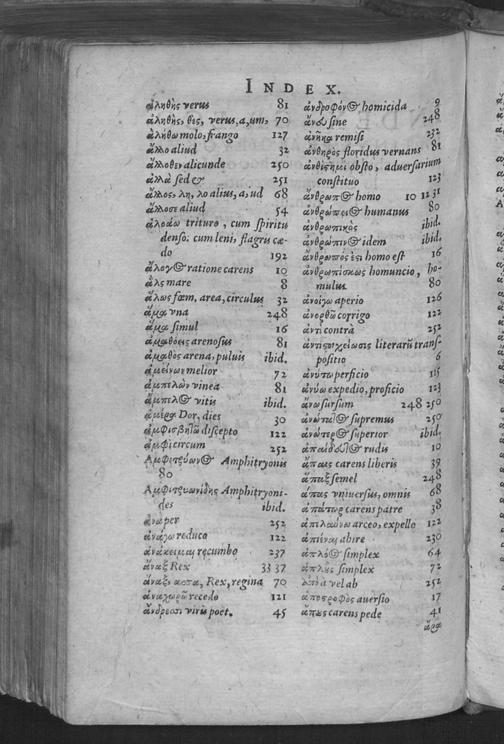 INDEX.
ἀληθὴς verus 81
ἀληθὴς, θὲς, verus, a, um, 70
ἀλήθω molo, frango 127
ἄλλο aliud 32
ἄλλοθεν alicunde 250
ἀλλὰ sed & 251
ἄλλος, λη, λο alius, a, ud 68
ἄλλοσε aliud 54
ἀλοάω trituro, cum spiritu
denso: cum leni, flagris cæ-
do 192
ἄλογος ratione carens 10
ἅλς mare 8
ἅλως fœm, area, circulus 32
ἅμα vna 248
ἅμα simul 16
ἀμαθόεις arenosus 81
ἄμαθος arena, puluis ibid.
ἀμείνων melior 72
ἀμπελὼν vinea 81
ἄμπελος vitis ibid.
ἀμέρα Dor, dies 30
ἀμφισβητῶ discepto 122
ἀμφὶ circum 252
Αμφιτρύων Amphitryonis
80
Αμφιτρυωνίδης Amphitryoni-
des ibid.
ἀνὰ per 252
ἀνάγω reduco 122
ἀνάκειμαι recumbo 237
ἄναξ Rex 33 37
ἄναξ, ασσα, Rex, regina 70
ἀναχωρῶ recedo 121
ἄνδρεσσι viris poet. 45
ἀνδροφόνος homicida 9
ἄνευ sine 248
ἀνῆκα remisi 232
ἀνθηρὸς floridus vernans 81
ἀνθίστημι obsto, aduersarium
constituo 123
ἄνθρωπος homo 10 12 31
ἀνθρώπειος humanus 80
ἀνθρωπικὸς ibid.
ἀνθρώπινος idem ibid.
ἄνθρωπός ἐστι homo est 16
ἀνθρωπίσκος homuncio, ho-
mulus. 80
ἀνοίγω aperio 126
ἀνορθῶ corrigo 122
ἀντὶ contrà 252
ἀντιστοιχείωσις literarũ trans-
positio 6
ἀνύτω perficio 115
ἀνύω expedio, proficio 123
ἄνω sursum 248 250
ἀνώτατος supremus 250
ἀνώτερος superior ibid.
ἀπαίδευτος rudis 10
ἄπαις carens liberis 39
ἅπαξ semel 248
ἅπας vniuersus, omnis 68
ἀπάτωρ carens patre 38
ἀπελαύνω arceo, expello 122
ἀπιέναι abire 230
ἁπλόος simplex 64
ἁπλῦς simplex 72
ἀπὸ à vel ab 252
ἀποστροφὸς auersio 17
ἄπους carens pede 41
ἄρα